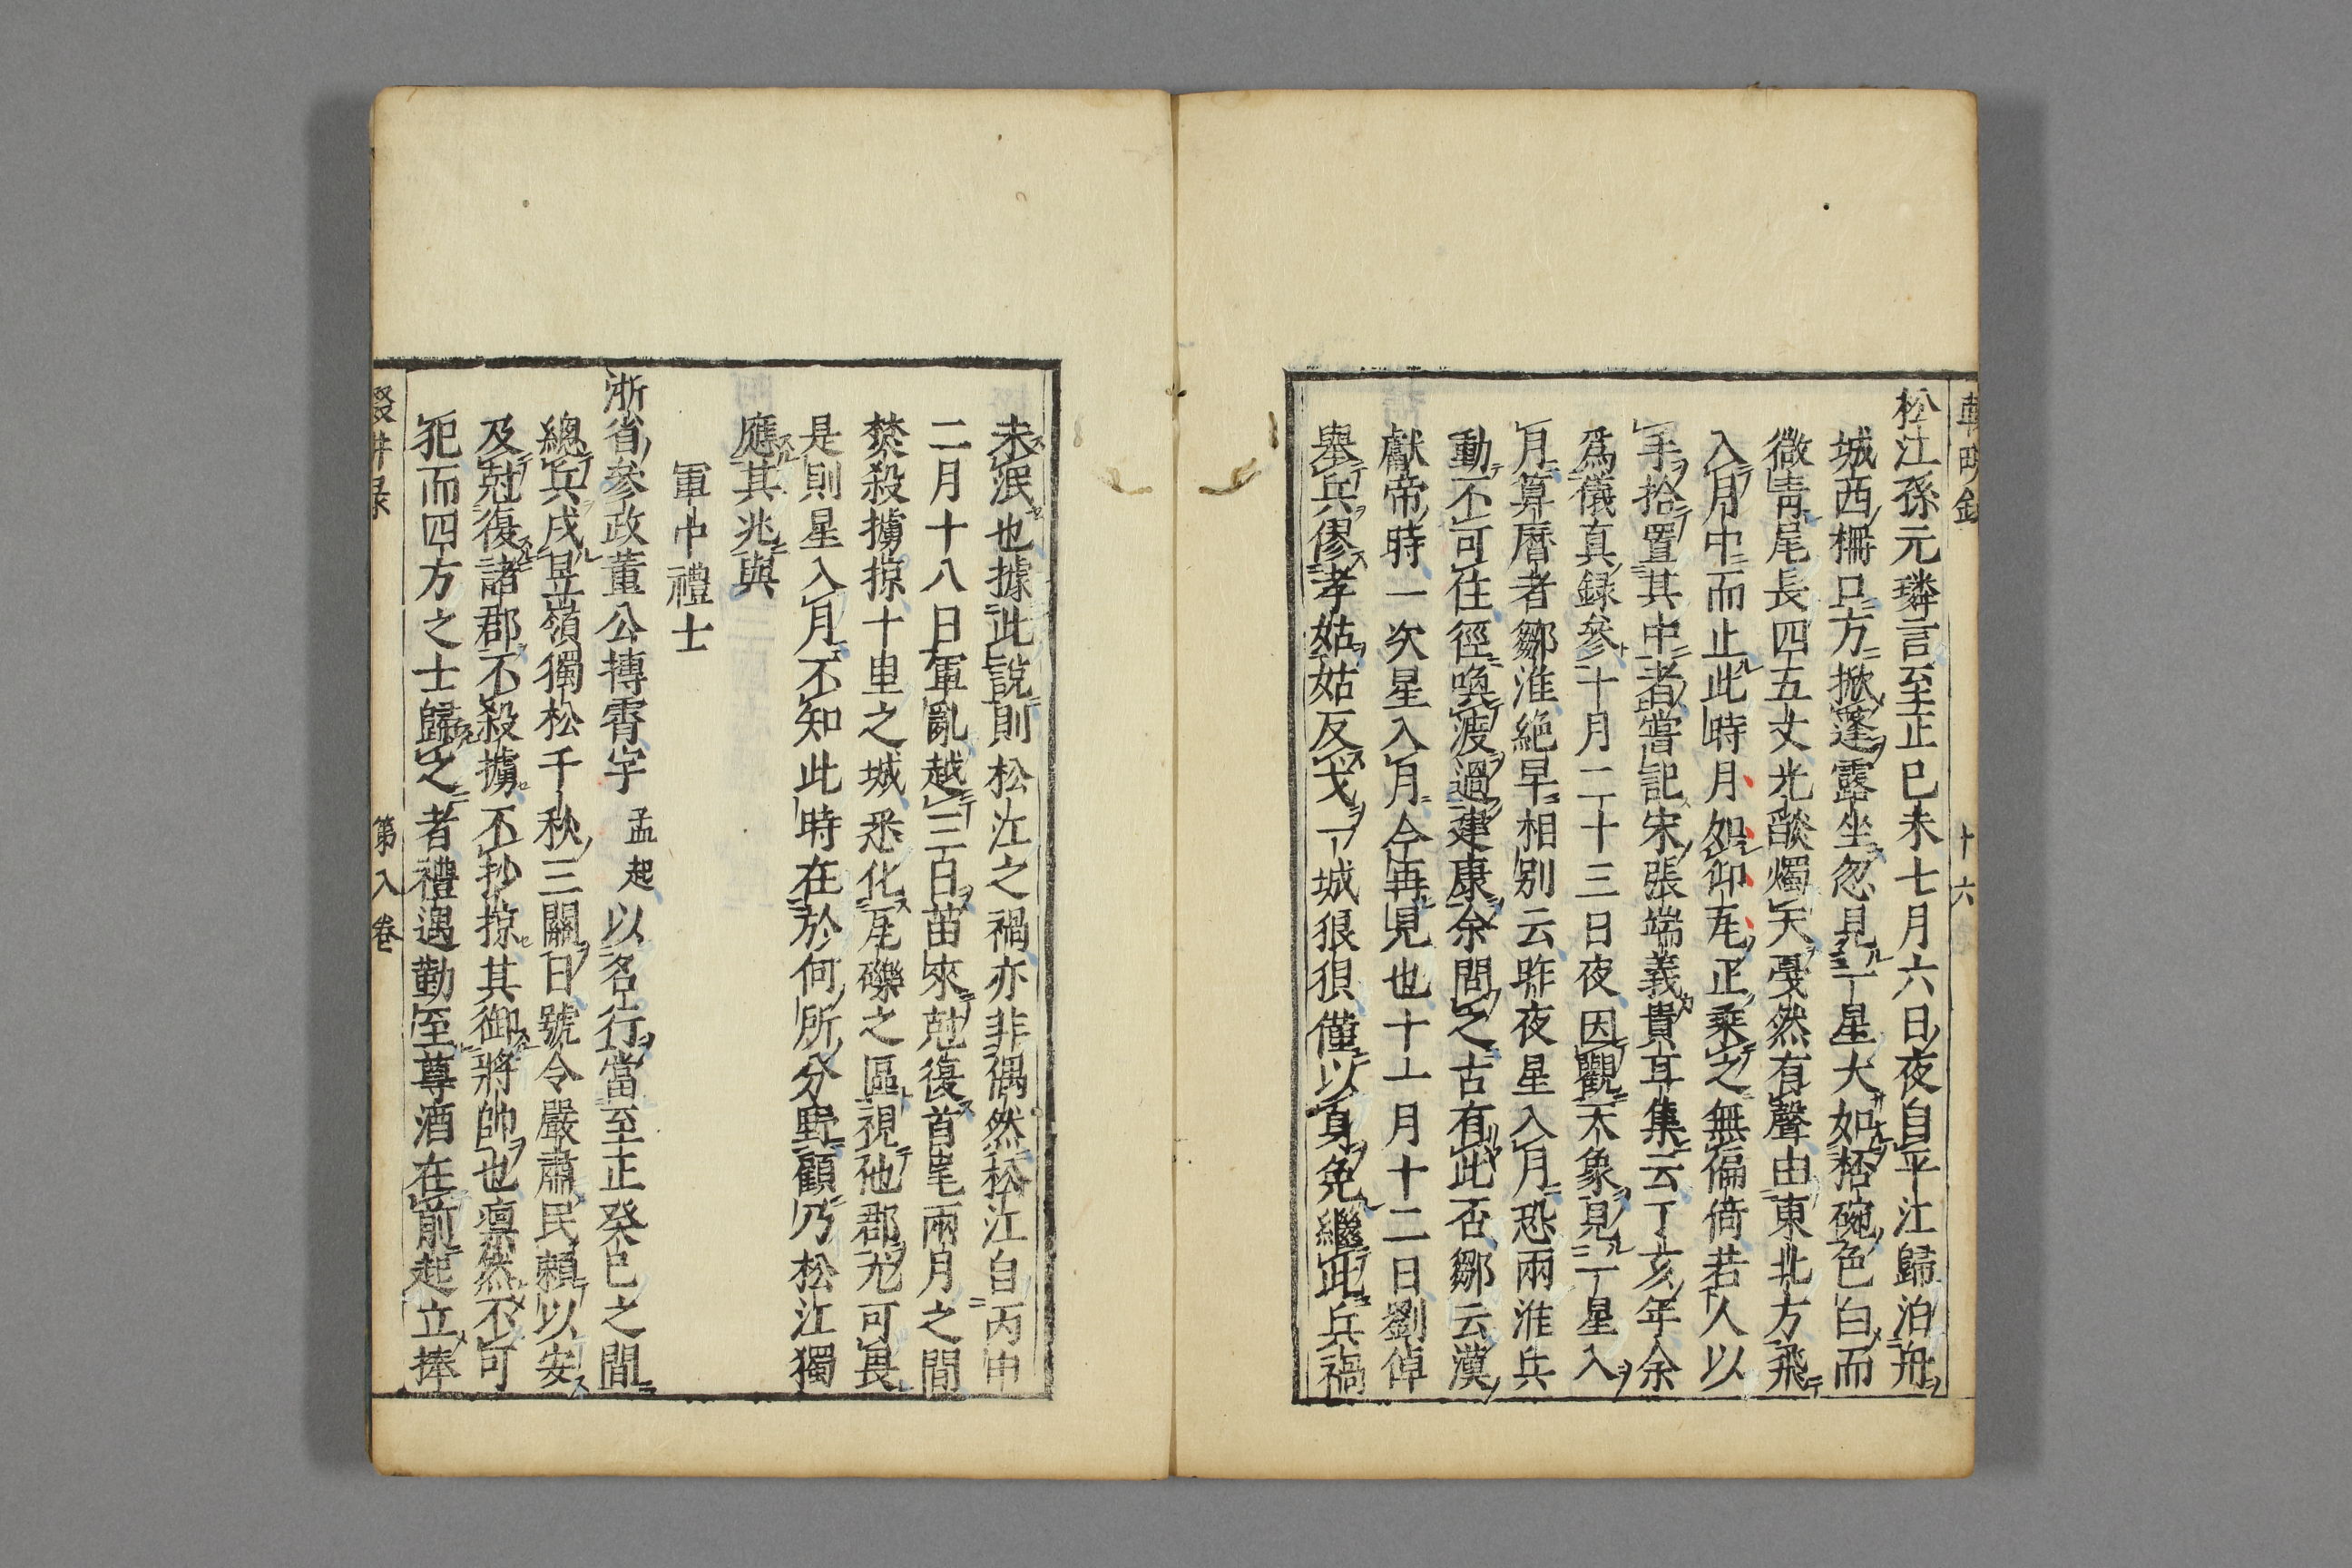 十六
松江孫元璘言至正巳未七月六日夜自平江歸泊舟
城西柵口方掀蓬露坐忽見一星大如桮碗色白而
微靑尾長四五丈光燄燭天戞然有聲由東北方飛
入月中而止此時月如仰瓦正乘之無偏倚若人以
手拾置其中者嘗記宋張端義貴耳集云丁亥年余
爲儀真録參十月二十三日夜因觀天象見一星入
月算曆者鄒淮絶早相别云昨夜星入月恐兩淮兵
動不可住徑喚渡過建康余問之古有此否鄒云漢
獻帝時一次星入月今再見也十一月十二日劉倬
舉兵僇李姑姑反戈一城狼狽僅以身免繼此兵禍
未泯也據此説則松江之禍亦非偶然松江自丙申
二月十八日軍亂越三百苗來尅復首尾兩月之間
焚殺擄掠十里之城悉化瓦礫之區視他郡尤可畏
是則星入月不知此時在於何所分野顧乃松江獨
應其兆與
軍中禮士
浙省参政董公摶霄字孟起以名行當至正癸巳之間
總兵戍昱嶺獨松千秋三關日號令嚴肅民賴以安
及尅復諸郡不殺擄不抄掠其御將帥也凛然不可
犯而四方之士歸之者禮遇勤至尊酒在前起立捧
第八卷